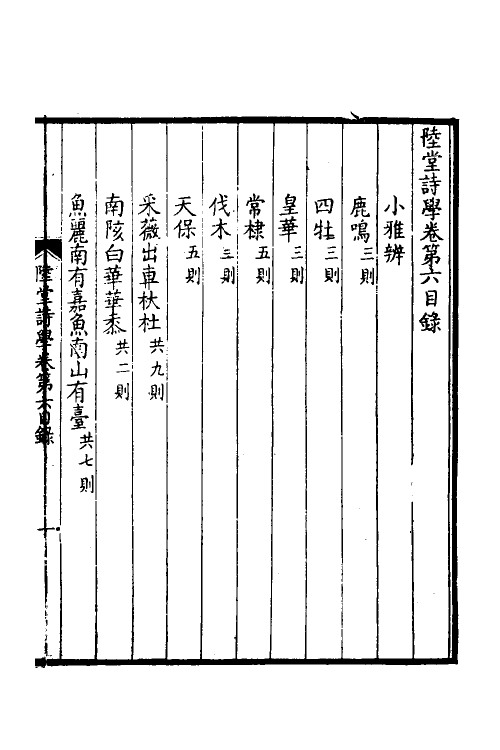 陸堂詩學卷第六目錄
小雅辨
鹿鳴三則
四牡三則
皇華三則
常棣五則
伐木三則
天保五則
采薇出車杕杜共九則
南陔白華華黍共二則
魚麗南有嘉魚南山有臺共七則
陸堂詩學卷第六目錄
一